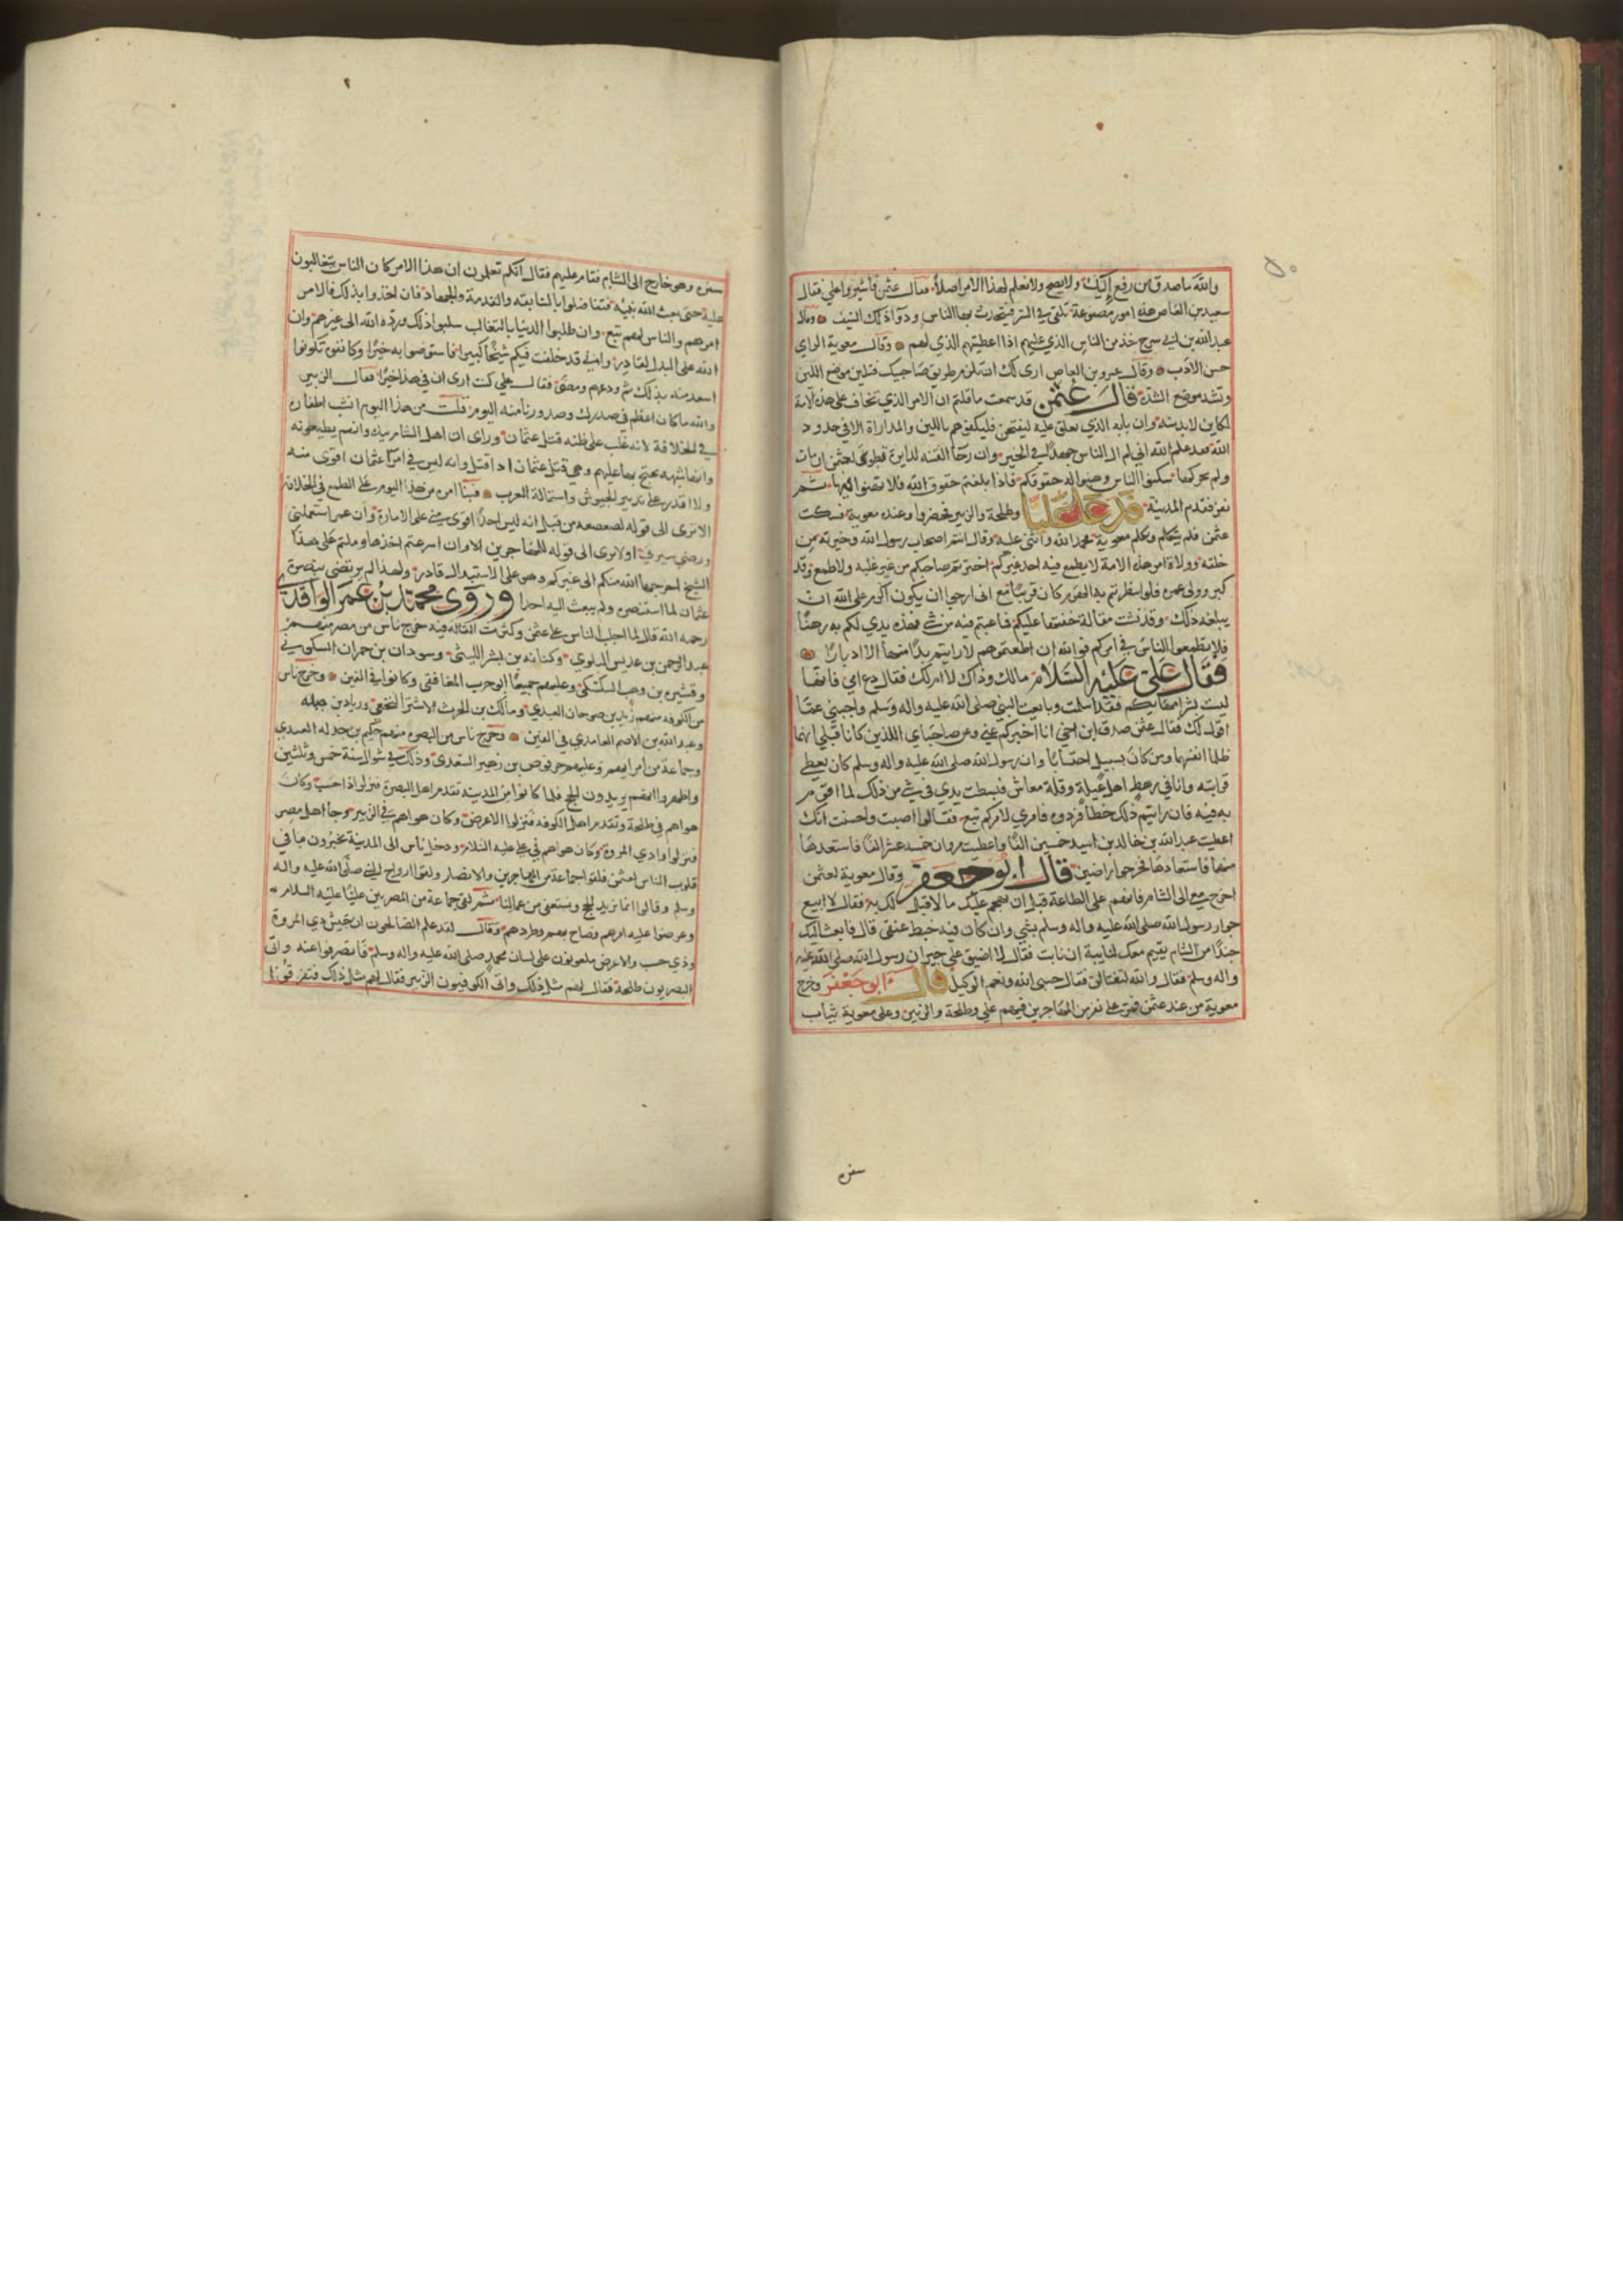 والله ما صدق من رفع إليك ولا نصح ولا نعلم لهذا الامر اصلا فقال عثمن فأشيروا علي فقال
سعيد بن العاص هذه امور مصنوعة تلقى في السر فيتحدث بها الناس ودواء ذلك السيف وقال
عبد الله بن ابي سرح خذ من الناس الذي عليهم اذا اعطيتهم الذي لهم وقال معوية الراي
حسن الادب وقال عمرو بن العاص ارى لك ان تلزم طريق صاحبيك فتلين موضع اللين
وتشد موضع الشدة فقال عثمن قد سمعت ما قلتم ان الامر الذي يخاف على هذه الامة
لكاين لا بد منه وان بابه الذي يغلق عليه ليفتحن فليكفكفهم باللين والمداراة الا في حدود
الله فقد علم الله اني لم ال الناس جهدا في الخير وان رحا الفتنة لدايرة فطوبى لعثمن ان مات
ولم يحركها سكنوا الناس وهبوا لهم حقوقكم فاذا بلغتم حقوق الله فلا تدهنوا فيها ثم
نفر فقدم المدينة فدعا عليا وطلحة والزبير فحضروا وعنده معوية فسكت
عثمن فلم يتكلم وتكلم معوية فحمد الله واثنى عليه وقال انتم اصحاب رسول الله وخيرته من
خلقه وولاة امر هذه الامة لا يطمع فيه احد غيركم اخترتم صاحبكم من غير غلبة ولا طمع وقد
كبر وولى عمره فلو انتظرتم به الهرم كان قريبا مع اني ارجوا ان يكون اكرم على الله ان
يبلغه ذلك وقد فشت مقالة خفتها عليكم فما عبتم فيه من شي فهذه يدي لكم به رهنا
فلا تطمعوا الناس في امركم فوالله ان اطعتموهم لا رايتم بدا منها الا ادبارا
فقال علي عليه السلام مالك وذاك لا ام لك فقال دع امي فانها
ليست بشر امهاتكم فقد اسلمت وبايعت النبي صلى الله عليه واله وسلم واجبني عما
اقول لك فقال عثمن صدق ابن اخي انا اخبركم عني وعن صاحباي اللذين كانا قبلي انهما
ظلما انفسهما ومن كان بسبيل احتسابا وان رسول الله صلى الله عليه واله وسلم كان يعطي
قرابته وانا في رهط اهل عيلة وقلة معاش فبسطت يدي في شي من ذلك لما اقوم
به فيه فان رايتم ذلك خطا فردوه فامري لامركم تبع فقالوا اصبت واحسنت انك
اعطيت عبد الله بن خالد بن اسيد خمسين الفا واعطيت مروان خمسة عشر الفا فاستعدها
منهما فاستعادها فخرجوا راضين قال ابو جعفر وقال معوية لعثمن
اخرج معي الى الشام فانهم على الطاعة قبل ان يهجم عليك ما لا قبل لك به فقال لا ابيع
جوار رسول الله صلى الله عليه واله وسلم بشي وان كان فيه خيط عنقي قال فابعث اليك
جندا من الشام يقيم معك لنايبة ان نابت فقال لا اضيق على جيران رسول الله صلى الله عليه
واله وسلم فقال والله لتغتالن فقال حسبي الله ونعم الوكيل قال ابو جعفر وخرج
معوية من عند عثمن فمر على نفر من المهاجرين فيهم علي وطلحة والزبير وعلى معوية ثياب
سفره
سفره وهو خارج الى الشام فقام عليهم فقال انكم تعلمون ان هذا الامر كان الناس يتغالبون
عليه حتى بعث الله نبيه فتفاضلوا بالسابقة والقدمة والجهاد فان اخذوا بذلك فالامر
امرهم والناس لهم تبع وان طلبوا الدنيا بالتغالب سلبوا ذلك ورده الله الى غيرهم وان
الله على البدل لقادر واني قد خلفت فيكم شيخا كبيرا فاستوصوا به خيرا وكانفوه تكونوا
اسعد منه بذلك ثم ودعهم ومضى فقال علي كنت ارى ان في هذا خيرا فقال الزبير
والله ما كان اعظم في صدرك وصدورنا منه اليوم قلت من هذا اليوم انشب اظفاره
في الخلافة لانه غلب على ظنه قتل عثمان وراى ان اهل الشام بيده وانهم يطيعونه
وانها شبهة يحتج بها عليهم وهي قتل عثمان اذا قتل وانه ليس في امرا عثمان اقوى منه
ولا اقدر على تدبير الجيوش واستمالة العرب فبنا امره من هذا اليوم على الطمع في الخلافة
الا ترى الى قوله لصعصعة من قبل انه ليس احدا اقوى مني على الامارة وان عمر استعملني
ورضي سيرتي اولا ترى الى قوله للمهاجرين الاولين ان اسرعتم اخذها وملتم على هذا
الشيخ اخرجها الله منكم الى غيركم وهو على الاستبدال قادر ولهذا لم يرتضى بنصرة
عثمان لما استنصره ولم يبعث اليه احدا وروى محمد بن عمر الواقدي
رحمه الله قال لما اجلب الناس على عثمن وكثرت القالة فيه خرج ناس من مصر منهم
عبد الرحمن بن عديس البلوي وكنانة بن بشر الليثي وسودان بن حمران السكوني
وقتيره بن وهب السكسكي وعليهم جميعا ابو حرب الغافقي وكانوا في الفين وخرج ناس
من الكوفه منهم زيد بن صوحان العبدي ومالك بن الحرث الاشتر النخعي وزياد بن
وعبد الله بن الاصم العامري في الفين وخرج ناس من البصره منهم حكيم بن جبله العبدي
وجماعة من امرائهم وعليهم حرقوص بن زهير السعدي وذلك في شوال سنة خمس وثلثين
واظهروا انهم يريدون الحج فلما كانوا من المدينة تقدم اهل البصرة فنزلوا ذا خشب وكان
هواهم في طلحة وتقدم اهل الكوفه فنزلوا الاعوض وكان هواهم في الزبير وجا اهل مصر
فنزلوا وادي المروة وكان هواهم في علي عليه السلام ودخل ناس الى المدينة يخبرون ما في
قلوب الناس لعثمن فلقوا جماعة من المهاجرين والانصار ولقوا ازواج النبي صلى الله عليه واله
وسلم وقالوا انما نريد الحج ونستعفي من عمالنا ثم لقي جماعة من المصريين عليا عليه السلام
وعرضوا عليه امرهم فصاح بهم وطردهم وقال لقد علم الصالحون ان جيش ذي المروة
وذي خشب والاعوض ملعونون على لسان محمد صلى الله عليه واله وسلم فانصرفوا عنه واتى
البصريون طلحة فقال لهم مثل ذلك واتى الكوفيون الزبير فقال لهم مثل ذلك فتفرقوا